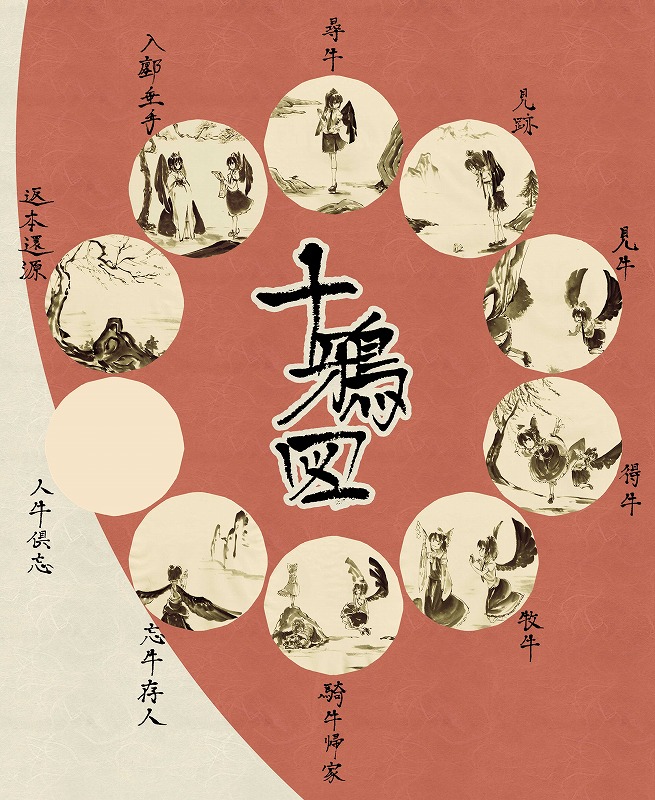 十鴉図
尋牛
見跡
見牛
得牛
牧牛
騎牛帰家
忘牛存人
人牛倶忘
返本還源
入鄽垂手